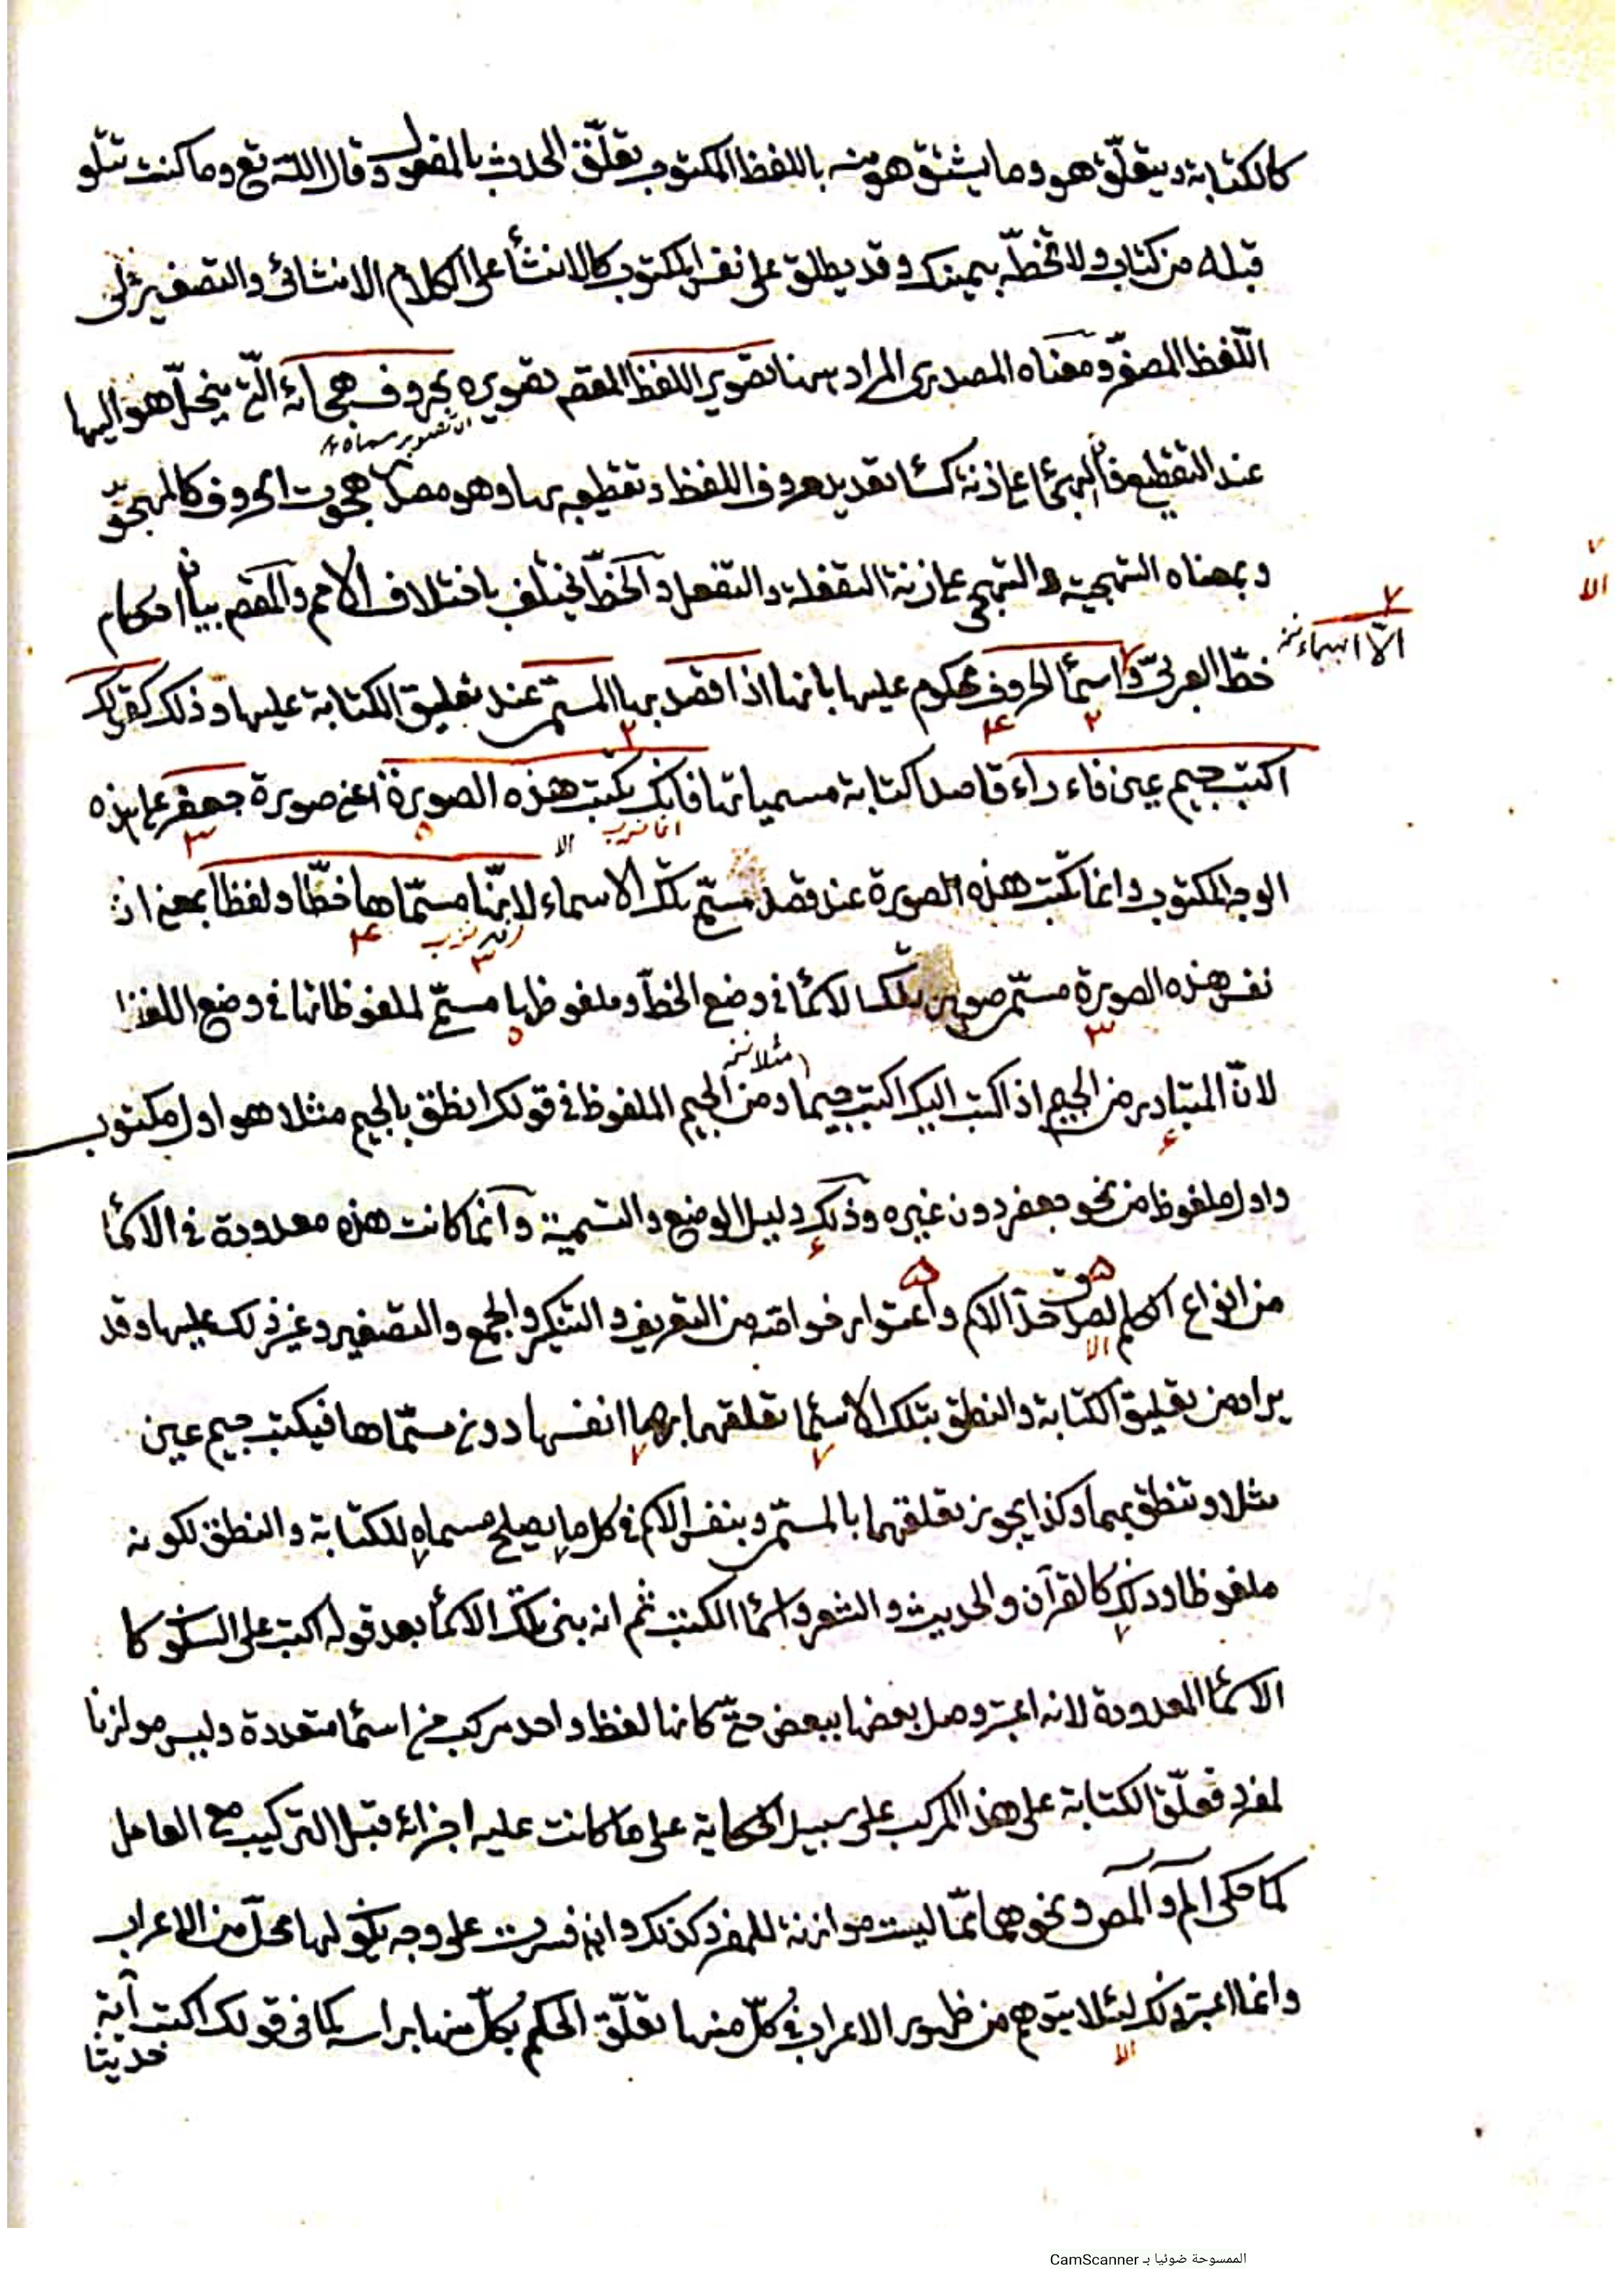 كالكتابة ويتعلّق هو وما يشتق هو منه باللفظ المكتوب تعلّق الحدث بالمفعول وقال الله تع وما كنت تتلو
قبله من كتاب ولا تخطّه بيمينك وقد يطلق على نفس المكتوب كالانشأ على الكلام الانشائى والتصغير على
اللّفظ المصغّر ومعناه المصدرى المراد ههنا تصوير اللفظ المقصم تصويره بحروف هجائه الّتى ينحلّ هو اليها
اى تصوير مسماه
عند التقطيع فان الهجأ على زنة كسأ تعديد حروف اللفظ وتقطيعه بها وهو مصدر هجوت الحروف كالهجو
وبمعناه التهجية والتهجى على زنة التفعلة والتفعل والخطّ يختلف باختلاف الامم والمقصم بيان احكام
الّا اسماء نخ
خطّ العربىّ واسمأ الحروف محكوم عليها بانها اذا قصد بها المسمى عند تعليق الكتابة عليها وذلك كقولك
اكتب جيم عين فاء راء قاصدا كتابة مسمياتها فانك تكتب هذه الصورة اعنى صورة جعفر على هذه
الوجه المكتوب وانما تكتب هذه الصورة عند قصد مسمّى تلك الاسماء لانّها مسمّاها خطّا ولفظا بمعنى ان
نفس هذه الصورة مسمّى صور تلك الاسمأ فى وضع الخطّ وملفوظها مسمّى لملفوظاتها فى وضع اللفظ
مثلا نخ
لانّ المتبادر من الجيم اذا كتب اليك اكتب جيما ومن الجيم الملفوظ فى قولك انطق بالجيم مثلا هو اول مكتوب
واول ملفوظ من نحو جعفر دون غيره وذلك دليل الوضع والتسمية وانّما كانت هذه معدودة فى الاسمأ
من انواع الكلم لصدق حدّ الاسم واعتوار خواصّه من التعريف والتنكير والجمع والتصغير وغير ذلك عليها وقد
يراد من تعليق الكتابة والنطق بتلك الاسمأ تعلقهما بها انفسها دون مسمّاها فيكتب جيم عين
مثلا وتنطق بهما وكذا يجوز تعلقهما بالمسمّى وبنفس الاسم فى كل ما يصلح مسماه للكتابة والنطق لكونه
ملفوظا وذلك كالقرآن والحديث والشعر واسمأ الكتب ثم انه بنى تلك الاسمأ بعد قوله اكتب على السكون كا
الاسمأ المعدودة لانه اعتبر وصل بعضها ببعض حتى كانها لفظ واحد مركب من اسمأ متعددة وليس موازنا
لمفرد فعلّق الكتابة على هذا المركب على سبيل الحكاية على ما كانت عليه اجزائه قبل التركيب مع العامل
كما حكى الم والمص ونحوهما ممّا ليست موازنة للمفرد كذلك وان فسرت على وجه يكون لها محلّ من الاعراب
وانما اعتبر ذلك لئلا يتوهم من ظهور الاعراب فى كلّ منها تعلّق الحكم بكلّ منها براسه كما فى قولك اكتب آية
حديثا
الممسوحة ضوئيا بـ CamScanner